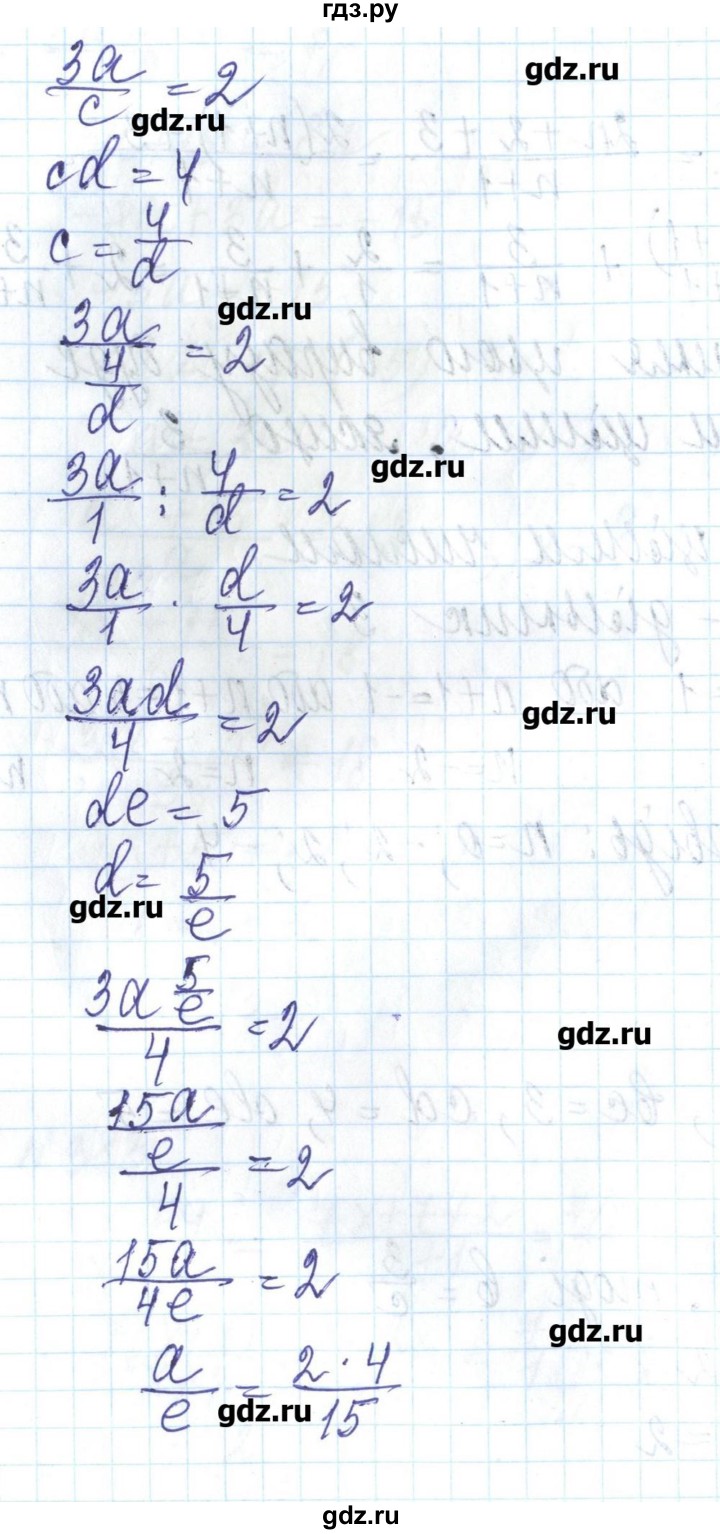 гдз.ру
gdz.ru
3a/c = 2
gdz.ru
cd = 4
c = 4/d
gdz.ru
3a/(4/d) = 2
gdz.ru
3a/1 : 4/d = 2
3a/1 · d/4 = 2
3ad/4 = 2
gdz.ru
de = 5
d = 5/e
gdz.ru
3a 5/e / 4 = 2
gdz.ru
15a/e / 4 = 2
15a/4e = 2
gdz.ru
a/e = 2·4/15
gdz.ru
gdz.ru